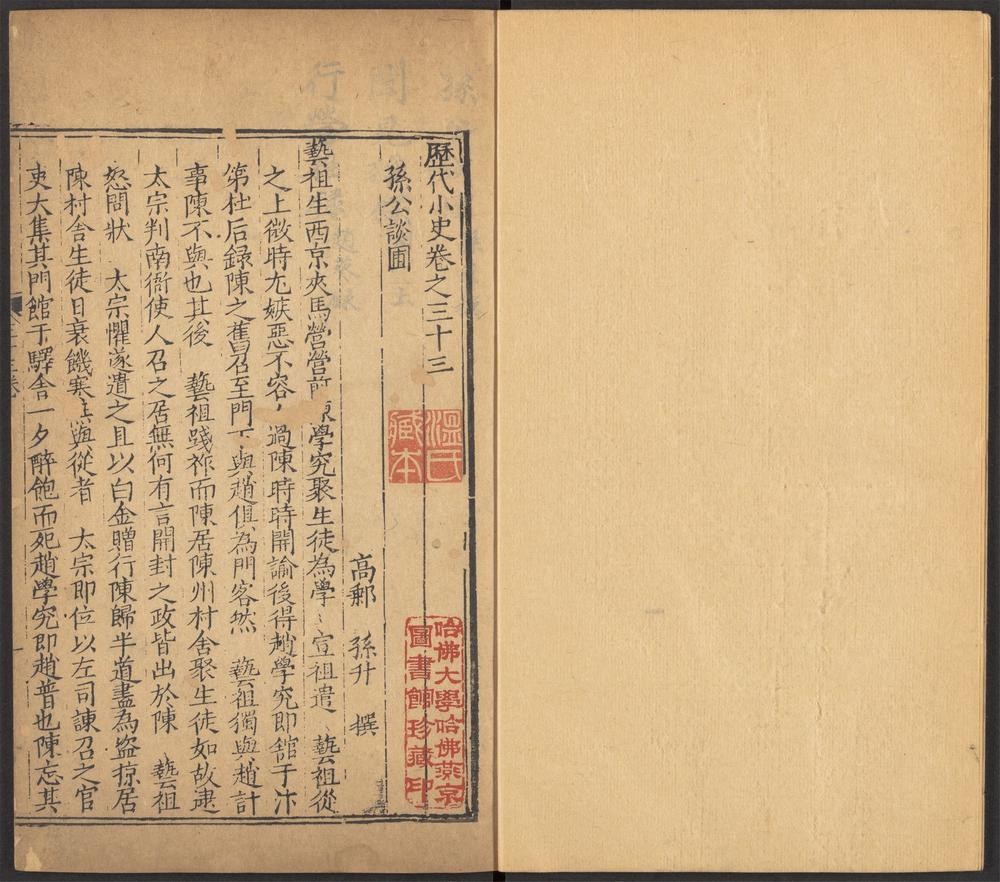 歷代小史卷之三十三
孫公談圃
高郵　孫升　撰
藝祖生西京夾馬營營前陳學究聚生徒為學〻宣祖遣　藝祖從
之上微時尤嫉惡不容人過陳時時開諭後得趙學究即舘于汴
第杜后録陳之舊召至門下與趙俱為門客然　藝祖獨與趙計
事陳不與也其後　藝祖踐祚而陳居陳州村舍聚生徒如故逮
太宗判南衙使人召之居無何有言開封之政皆出於陳　藝祖
怒問狀　太宗懼遂遣之且以白金贈行陳歸半道盡為盜掠居
陳村舍生徒日衰饑寒與從者　太宗即位以左司諫召之官
吏大集其門館于驛舍一夕醉飽而死趙學究即趙普也陳忘其
溫氏藏本
哈佛大學哈佛燕京圖書館珍藏印